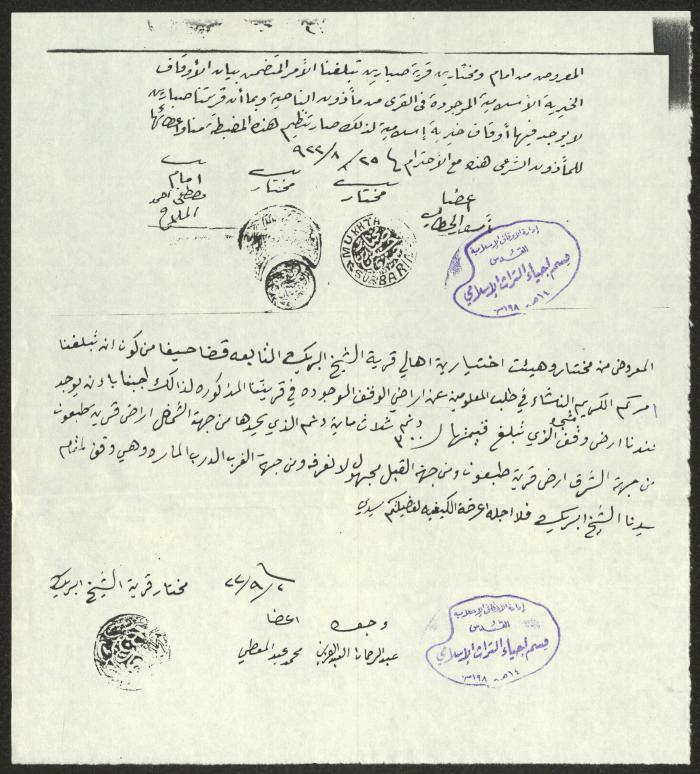 المعروض من امام ومختارين قرية صبارين تبلغنا الأمر المتضمن بيان الأوقاف
الخيرية الأسلامية الموجودة في القرى من مأذون الناحية وبما أن قريتنا صبارين
لا يوجد فيها أوقاف خيرية إسلامية لذلك صار تنظيم هذه المضبطة منا واعطائها
للمأذون الشرعي هذه مع الأحترام ٢٥/٨/٩٢٢
اعضا
مختار
مختار
امام
مصطفى احمد
MUKHTAR
SUBBARIN
إدارة الأوقاف الإسلامية
القدس
قسم إحياء التراث الإسلامي
المعروض من مختار وهيئت اختيارية اهالي قرية الشيخ ابريك التابعه قضا حيفا من كون ان تبلغنا
امركم الكريم الناشاء في طلب المعلومين عن اراضي الوقف الموجوده في قريتنا المذكوره لذالك اجبنا بان يوجد
عندنا ارض وقف الذي تبلغ قيمتها ٣٠٠ دنم ثلاث ماية دنم الذي يحدها من جهة الشمال اراضي قرية طبعون
من جهة الشرق ارض قرية طبعون ومن جهة القبل مجهول لا نعرفه ومن جهة الغرب الدرب الماره وهي وقف لمقام
سيدنا الشيخ ابريك فلاجله اعرضة الكيفيه لفضيلتكم سيدي
مختار قرية الشيخ ابريك
اعضا
محمد عبد المعطي
إدارة الأوقاف الإسلامية
القدس
قسم إحياء التراث الإسلامي